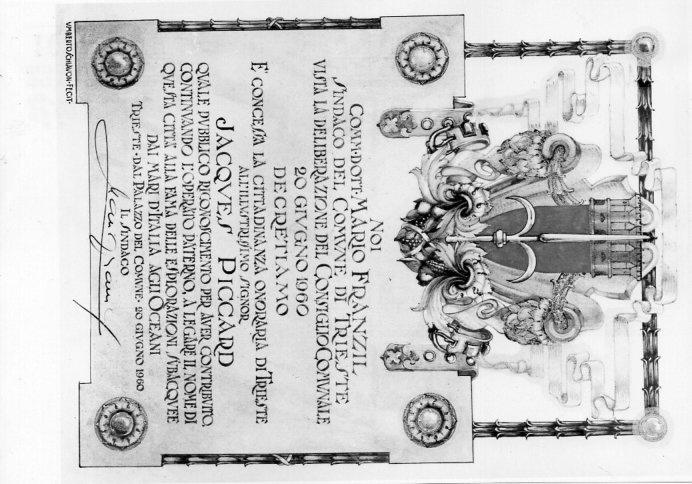 NOI
COMM·DOTT·MARIO FRANZIL
SINDACO DEL COMVNE DI TRIESTE
VISTA LA DELIBERAZIONE DEL CONSIGLIO COMVNALE
20 GIVGNO 1960
DECRETIAMO
E' CONCESSA LA CITTADINANZA ONORARIA DI TRIESTE
ALL'ILLUSTRISSIMO SIGNOR
JACQVES PICCARD
QVALE PVBBLICO RICONOSCIMENTO PER AVER CONTRIBVITO,
CONTINVANDO L'OPERATO PATERNO, A LEGARE IL NOME DI
QVESTA CITTÀ ALLA FAMA DELLE ESPLORAZIONI SVBACQVEE
DAI MARI D'ITALIA AGLI OCEANI
TRIESTE·DAL PALAZZO DEL COMVNE· 20 GIVGNO 1960
IL SINDACO